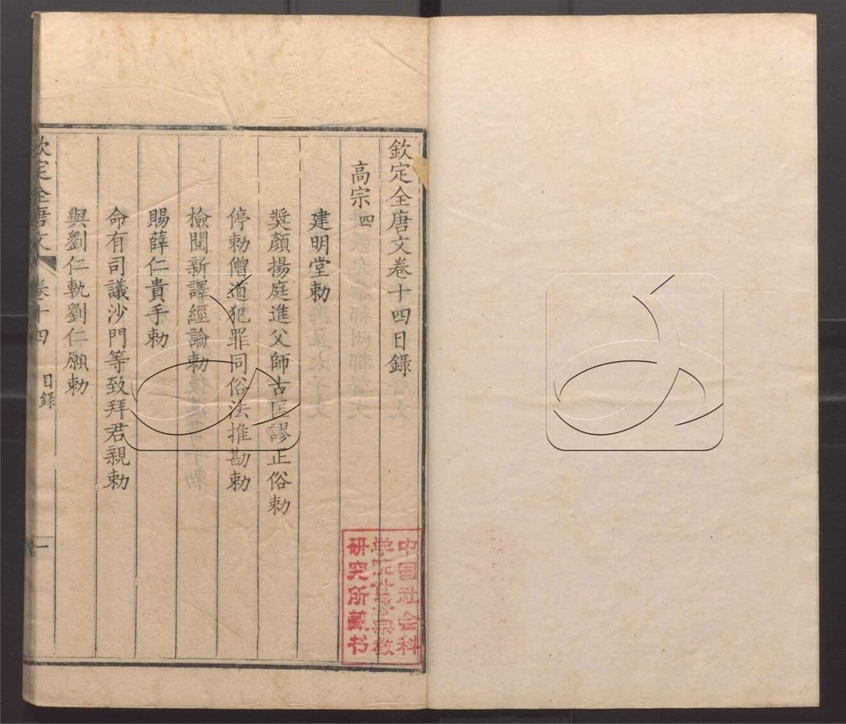 欽定全唐文卷十四目錄
高宗 四
建明堂勅
奬顏揚庭進父師古匡謬正俗勅
停勅僧道犯罪同俗法推勘勅
檢閱新譯經論勅
賜薛仁貴手勅
命有司議沙門等致拜君親勅
與劉仁軌劉仁願勅
欽定全唐文 卷十四 目錄 一
中国社会科
学院世界宗教
研究所藏书